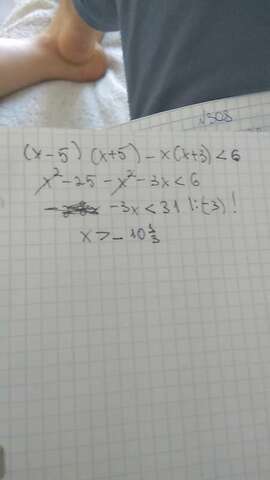 √308
(x-5)(x+5)-x(x+3)<6
x²-25-x²-3x<6
-3x<31 |:(-3)!
x>-10⅓